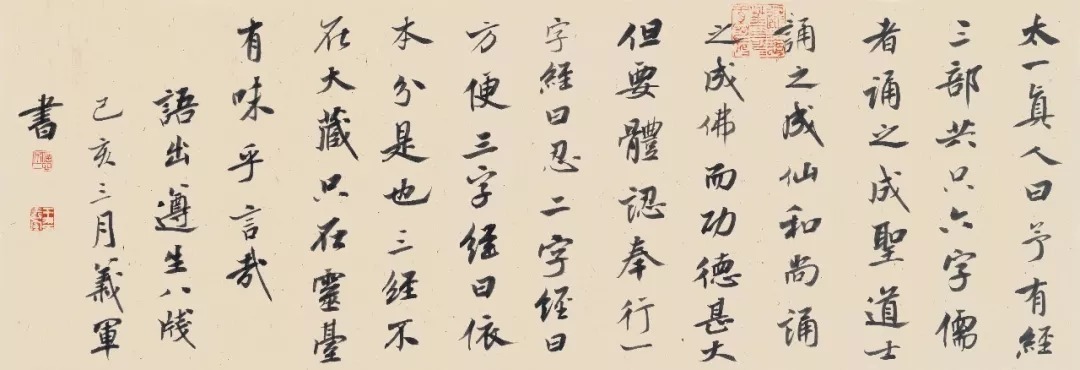 太一真人曰予有經
三部共只六字儒
者誦之成聖道士
誦之成仙和尚誦
之成佛而功德甚大
但要體認奉行一
字經曰忍二字經曰
方便三字經曰依
本分是也三經不
在大藏只在靈臺
有味乎言哉
語出遵生八牋
己亥三月義軍
書